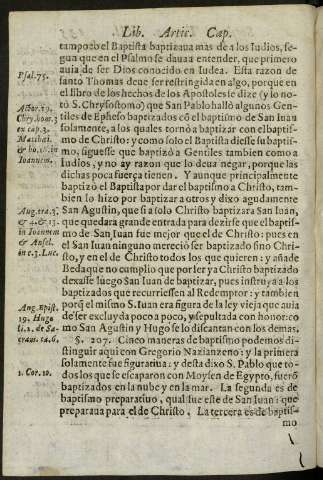 Lib. Artic. Cap.
tampoco el Baptista baptizaua mas de a los Iudios, se-
gun que en el Psalmo se dauaa entender, que primero
auia de ser Dios conocido en Iudea. Esta razon de
santo Thomas deue ser restringida en algo, porque en
el libro de los hechos de los Apostoles se dize (y lo no-
tò S. Chrysostomo) que San Pablo hallò algunos Gen-
tiles de Epheso baptizados cõ el baptismo de San Iuan
solamente, a los quales tornò a baptizar con el baptis-
mo de Christo: y como solo el Baptista diesse su baptis-
mo, siguesse que baptizò a Gentiles tambien como a
Iudios, y no ay razon que lo deua negar, porque las
dichas poca fuerça tienen. Y aunque principalmente
baptizò el Baptista por dar el baptismo a Christo, tam-
bien lo hizo por baptizar a otros y dixo agudamente
San Agustin, que si a solo Christo baptizara San Iuan,
que quedara grande entrada para dezirse que el baptis-
mo de San Iuan fue mejor que el de Christo: pues en
el San Iuan ninguno mereciò ser baptizado sino Chri-
sto, y en el de Christo todos los que quieren: y añade
Beda que no cumplio que por ler ya Christo baptizado
dexasse luego San Iuan de baptizar, pues instruya a los
baptizados que recurriessen al Redemptor: y tambien
porq̃ el mismo S. Iuan era figura de la ley vieja que auia
de ser excluyda poco a poco, y sepultada con honor: co
mo San Agustin y Hugo se lo discantan con los demas.
§. 207. Cinco maneras de baptismo podemos di-
stinguir aqui con Gregorio Nazianzeno: y la primera
solamente fue figuratiua: y desta dixo S. Pablo que to-
dos los que se escaparon con Moysen de Egypto, fuerõ
baptizados en la nube y en la mar. La segunda es de
baptismo preparatiuo, qual fue este de San Iuan: que
preparaua para el de Christo. La tercera es de baptis-
mo
Psal. 75.
Actor. 19.
Chry. hom. 3
ex cap. 3.
Matthæi.
in
Ioannem.
Aug. tra. 3.
& 4. & 13.
in Ioannem
& Ansel.
in c. 3. Luc.
Aug. Epist.
19. Hugo
li. 2. de Sa-
cram. ca. 6.
1. Cor. 10.